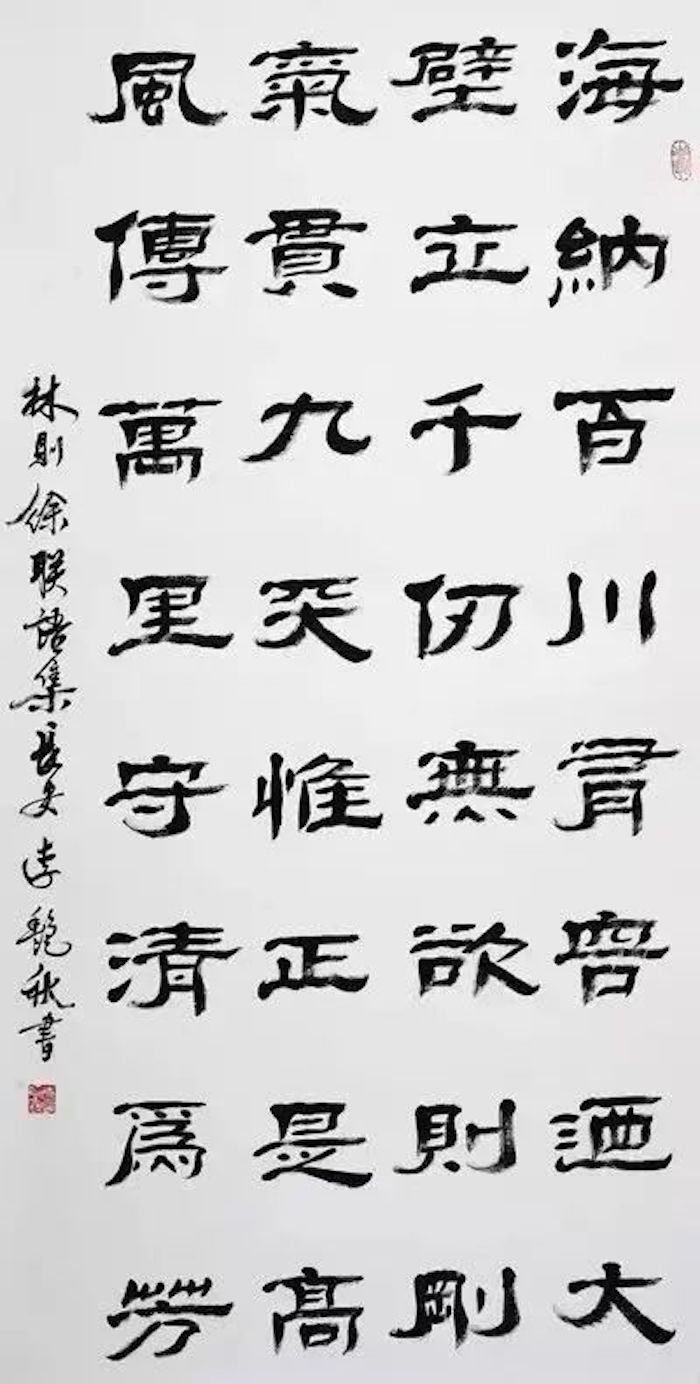 海納百川有容迺大
壁立千仞無欲則剛
氣貫九天惟正是高
風傳萬里守清為芳
林則徐联語集長文 李艷秋書